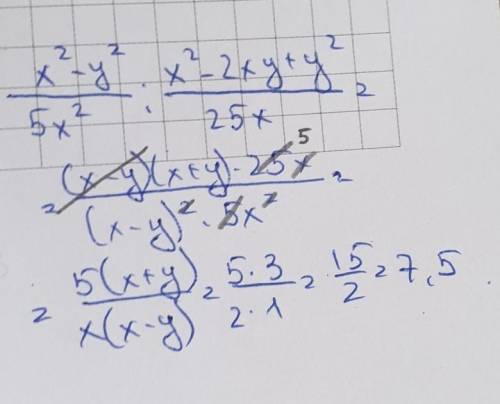 x² - y² / 5x² : x² - 2xy + y² / 25x =
= (x - y)(x + y) · 25x 5 / (x - y)² · 5x² =
= 5(x + y) / x(x - y) = 5 · 3 / 2 · 1 = 15 / 2 = 7,5